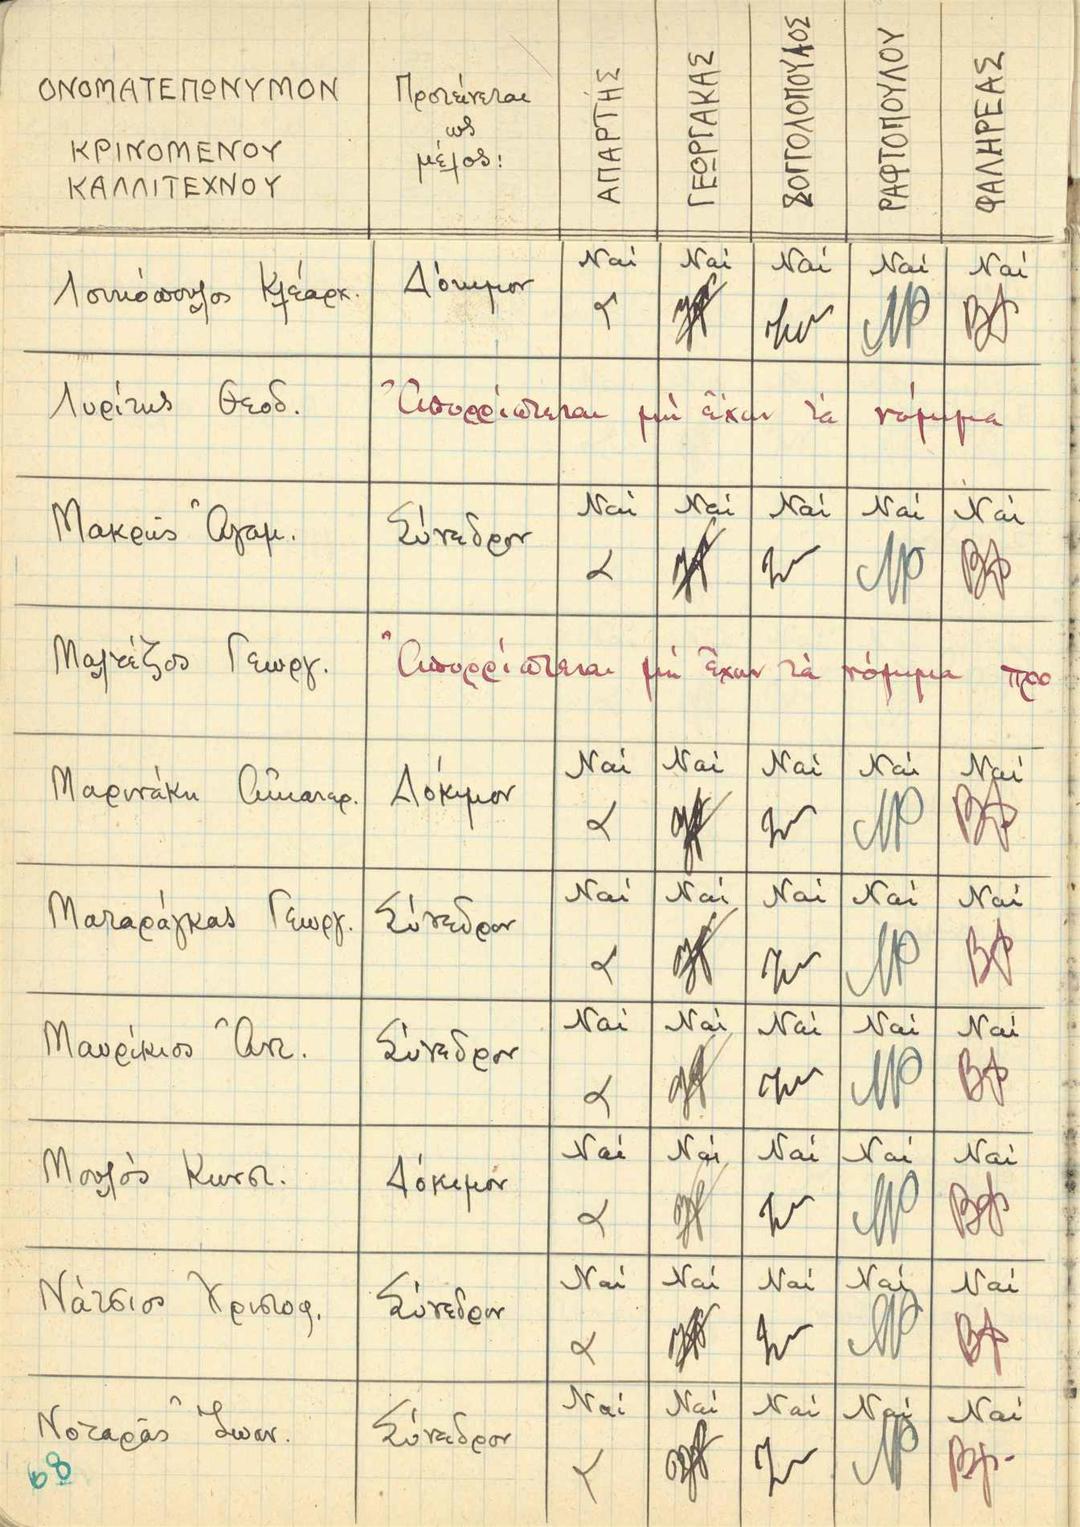 ΟΝΟΜΑΤΕΠΩΝΥΜΟΝ
ΚΡΙΝΟΜΕΝΟΥ
ΚΑΛΛΙΤΕΧΝΟΥ
Προτείνεται
ως
μέλος:
ΑΠΑΡΤΗΣ
ΓΕΩΡΓΑΚΑΣ
ΖΟΓΓΟΛΟΠΟΥΛΟΣ
ΡΑΦΤΟΠΟΥΛΟΥ
ΦΑΛΗΡΕΑΣ
Λουκόπουλος Κλέαρχ. Δόκιμον Ναί Ναί Ναί Ναί Ναί
Λυρίτης Θεοδ. Ἀπορρίπτεται μὴ ἔχων τὰ νόμιμα
Μακρῆς Ἀγαμ. Σύνεδρον Ναί Ναί Ναί Ναί Ναί
Μαλτέζος Γεωργ. Ἀπορρίπτεται μὴ ἔχων τὰ νόμιμα προ
Μαρινάκη Αἰκατερ. Δόκιμον Ναί Ναί Ναί Ναί Ναί
Ματαράγκας Γεωργ. Σύνεδρον Ναί Ναί Ναί Ναί Ναί
Μαυρίκιος Ἀντ. Σύνεδρον Ναί Ναί Ναί Ναί Ναί
Μουλὸς Κωνστ. Δόκιμον Ναί Ναί Ναί Ναί Ναί
Νάτσιος Χριστοφ. Σύνεδρον Ναί Ναί Ναί Ναί Ναί
Νοταρᾶς Ἰωαν. Σύνεδρον Ναί Ναί Ναί Ναί Ναί
68